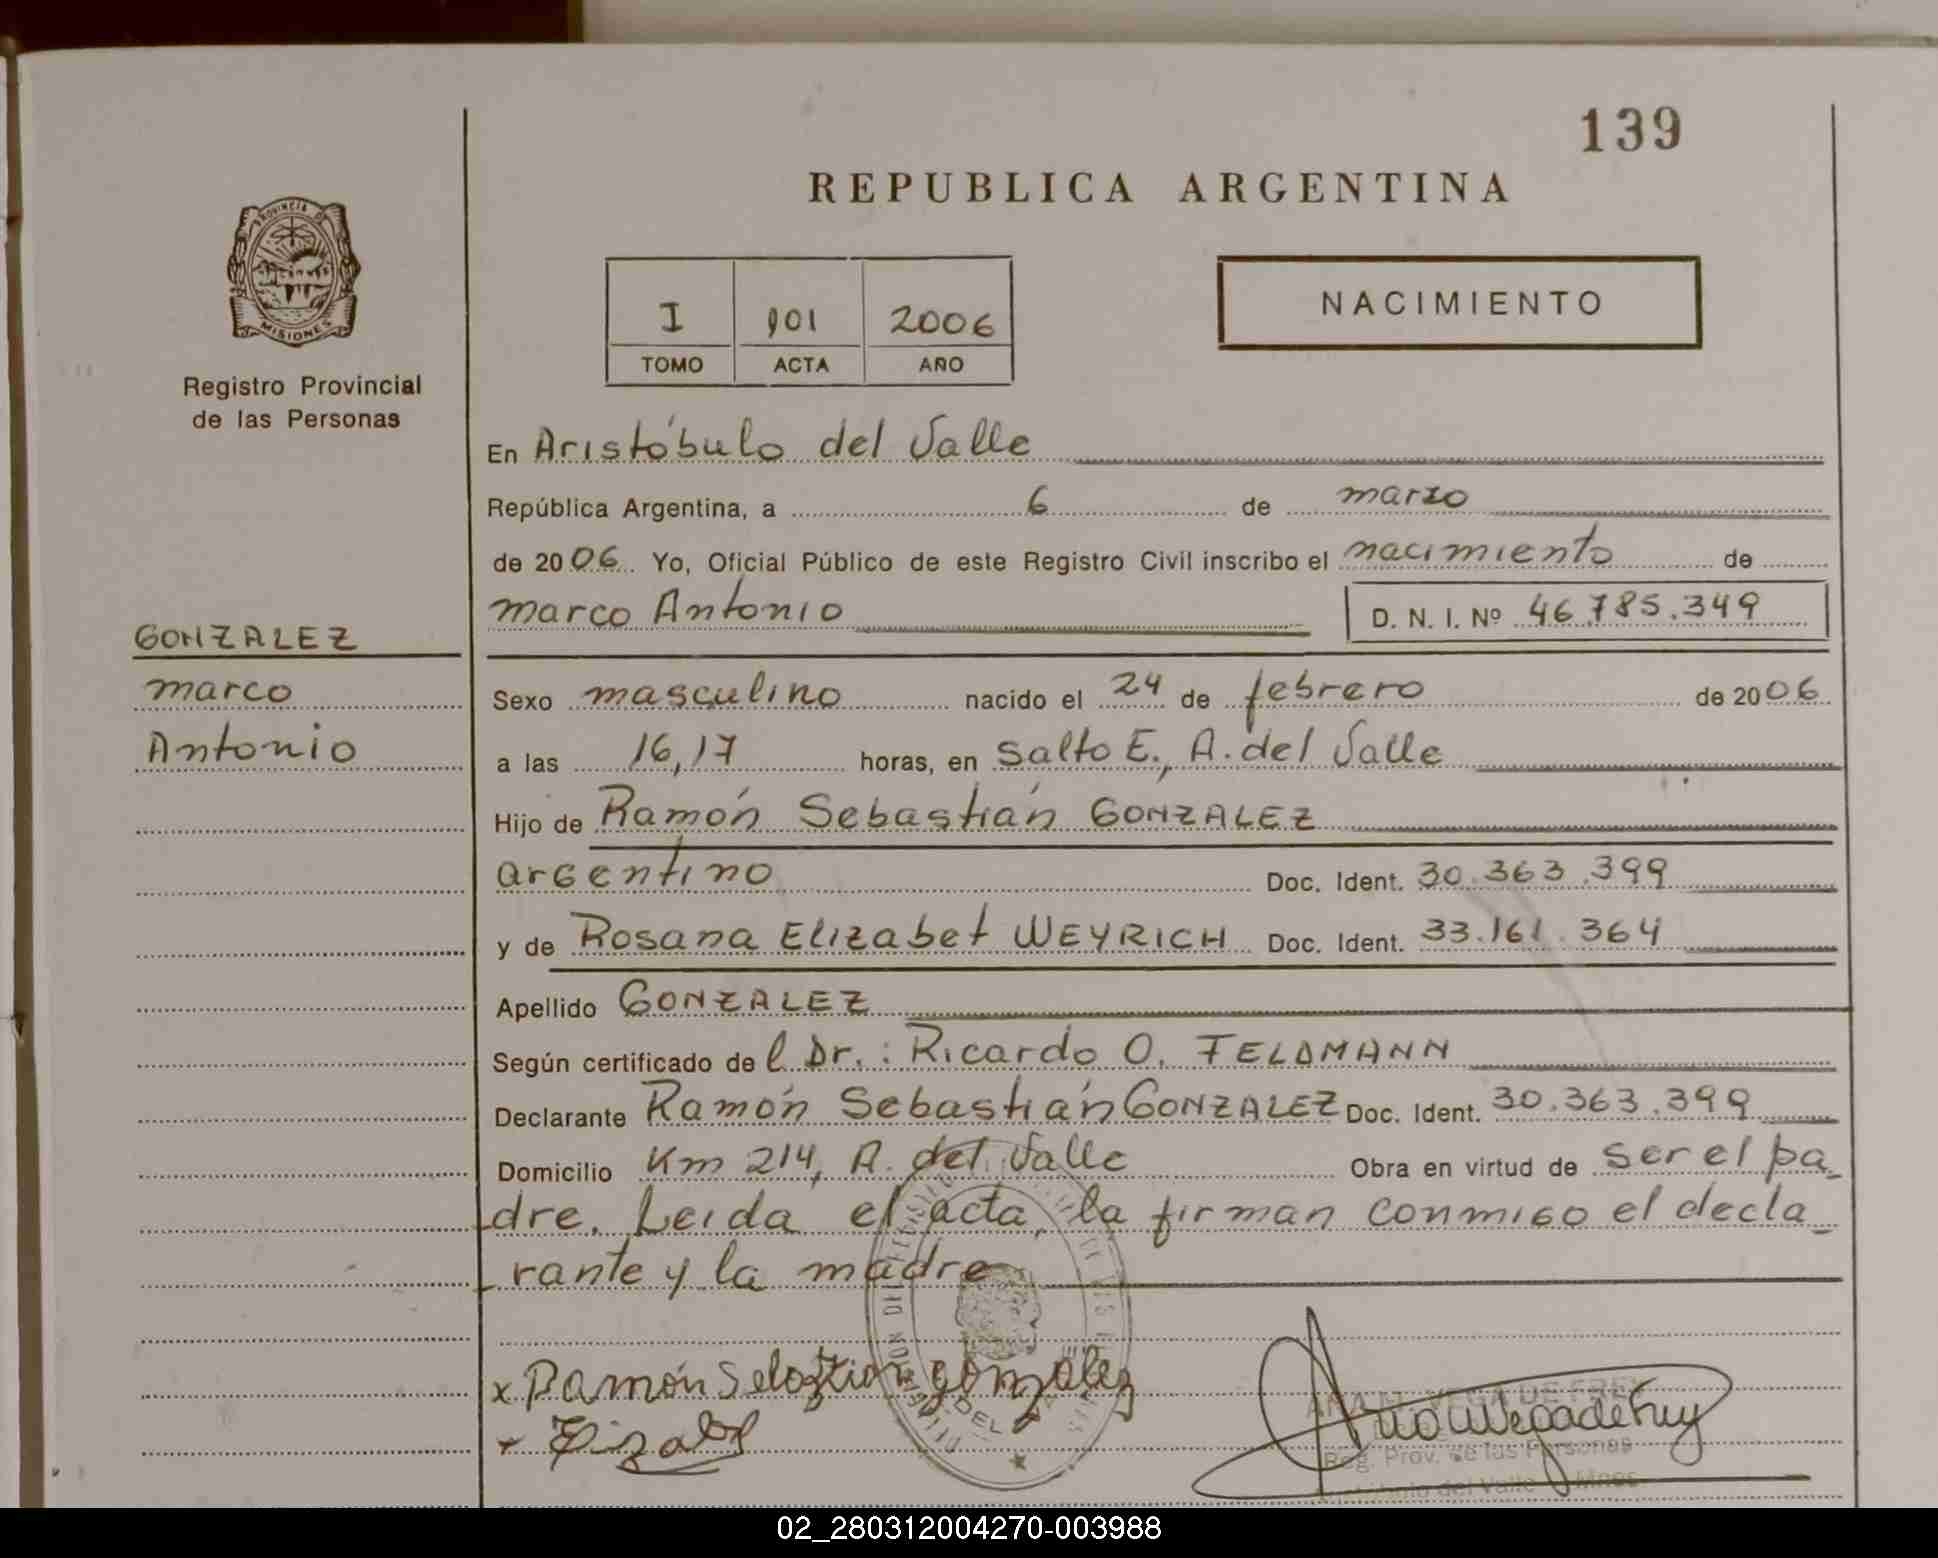 139
REPUBLICA ARGENTINA
PROVINCIA DE
MISIONES
Registro Provincial
de las Personas
I 101 2006
TOMO ACTA AÑO
NACIMIENTO
En Aristóbulo del Valle
República Argentina, a 6 de marzo
de 2006. Yo, Oficial Público de este Registro Civil inscribo el nacimiento de
marco Antonio D. N. I. Nº 46.785.349
GONZALEZ
marco
Antonio
Sexo masculino nacido el 24 de febrero de 2006
a las 16,17 horas, en Salto E., A. del Valle
Hijo de Ramón Sebastián GONZALEZ
argentino Doc. Ident. 30.363.399
y de Rosana Elizabet WEYRICH Doc. Ident. 33.161.364
Apellido GONZALEZ
Según certificado de l Dr.: Ricardo O. FELDMANN
Declarante Ramón Sebastián GONZALEZ Doc. Ident. 30.363.399
Domicilio Km 214, A. del Valle Obra en virtud de ser el pa_
_dre. Leida el acta, la firman conmigo el decla_
_rante y la madre
x Ramón Sebastian gonzalez
ANA M. VEGA DE FREY
Reg. Prov. de las Personas
02_280312004270-003988